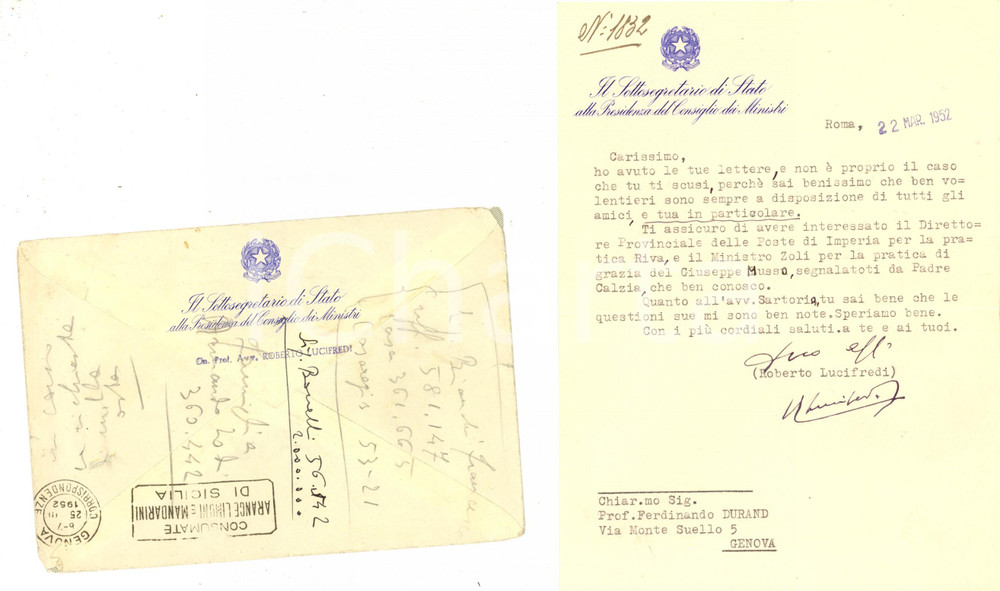 Il Sottosegretario di Stato
alla Presidenza del Consiglio dei Ministri
On. Prof. Avv. ROBERTO LUCIFREDI
Sig. Bonelli 56.842
2.000.000
581.147
casa 361.665
53-21
360.442
CONSUMATE
ARANCE LIMONI E MANDARINI
DI SICILIA
GENOVA
CORRISPONDENZE
6-7
25 III
1952
N: 1832
Il Sottosegretario di Stato
alla Presidenza del Consiglio dei Ministri
Roma, 22 MAR. 1952
Carissimo,
ho avuto le tue lettere, e non è proprio il caso
che tu ti scusi, perchè sai benissimo che ben vo-
lentieri sono sempre a disposizione di tutti gli
amici, e tua in particolare.
Ti assicuro di avere interessato il Diretto=
re Provinciale delle Poste di Imperia per la pra=
tica Riva, e il Ministro Zoli per la pratica di
grazia del Giuseppe Musso, segnalatoti da Padre
Calzia, che ben conosco.
Quanto all'avv. Sartorio, tu sai bene che le
questioni sue mi sono ben note. Speriamo bene.
Con i più cordiali saluti. a te e ai tuoi.
(Roberto Lucifredi)
Chiar.mo Sig.
Prof. Ferdinando DURAND
Via Monte Suello 5
GENOVA